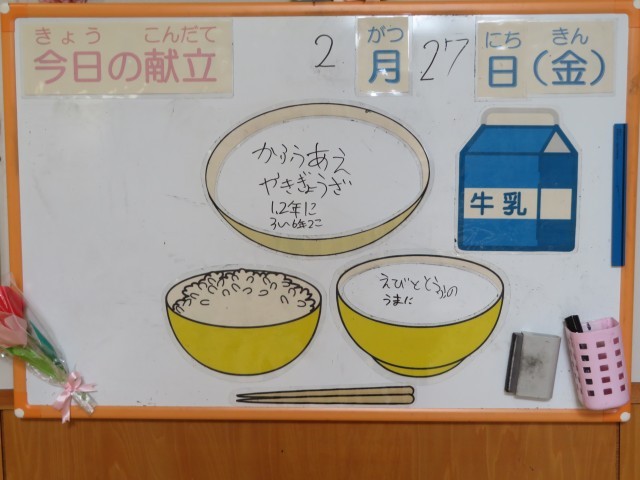 きょう こんだて
今日の献立
2月27日(金)
がつ にち きん
かふうあえ
やきぎょうざ
1.2年に
3い6年2こ
牛乳
えびととうふの
うまに